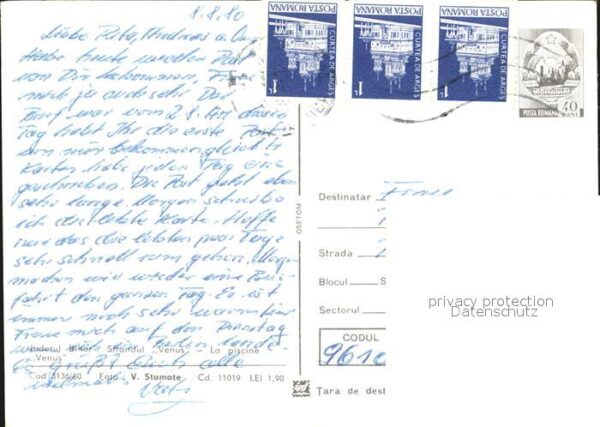 8.8.80
Liebe Rita, Andreas u.
Habe heute wieder Post
von Dir bekommen. Freue
mich ja auch sehr. Der
Brief war vom 2.8. An diesem
Tag habt Ihr die erste Post
von mir bekommen
Karten habe jeden Tag eine
geschrieben. Die Post geht eben
sehr lange. Morgen schreibe
ich die letzte Karte. Hoffe
nur das die letzten paar Tage
sehr schnell rum gehen. Morgen
machen wir wieder eine
fahrt den ganzen Tag. Es ist
immer noch sehr warm hier
Freue mich auf den Dienstag
wenn ich in Berlin lande
Es grüßt Euch alle
vielmals
Județul Bihor - Ștrandul „Venus" - La piscine
"Venus"
Cod 3136/80 Foto: V. Stamate Cd. 11019 LEI 1,90
OSETCM
POSTA ROMANA
CURTEA DE ARGEȘ
1L
POSTA ROMANA
CURTEA DE ARGEȘ
1L
POSTA ROMANA
CURTEA DE ARGEȘ
1L
40
BANI
POSTA ROMANA
Destinatar Frau
Strada
Blocul S
Sectorul
CODUL
9610
Țara de dest
privacy protection
Datenschutz